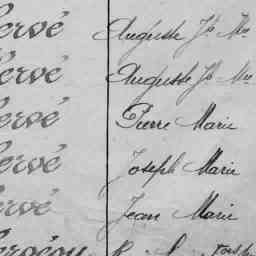 Hervé Auguste Jh Mie
Hervé Auguste Jh Mie
Hervé Pierre Marie
Hervé Joseph Marie
Hervé Jean Marie